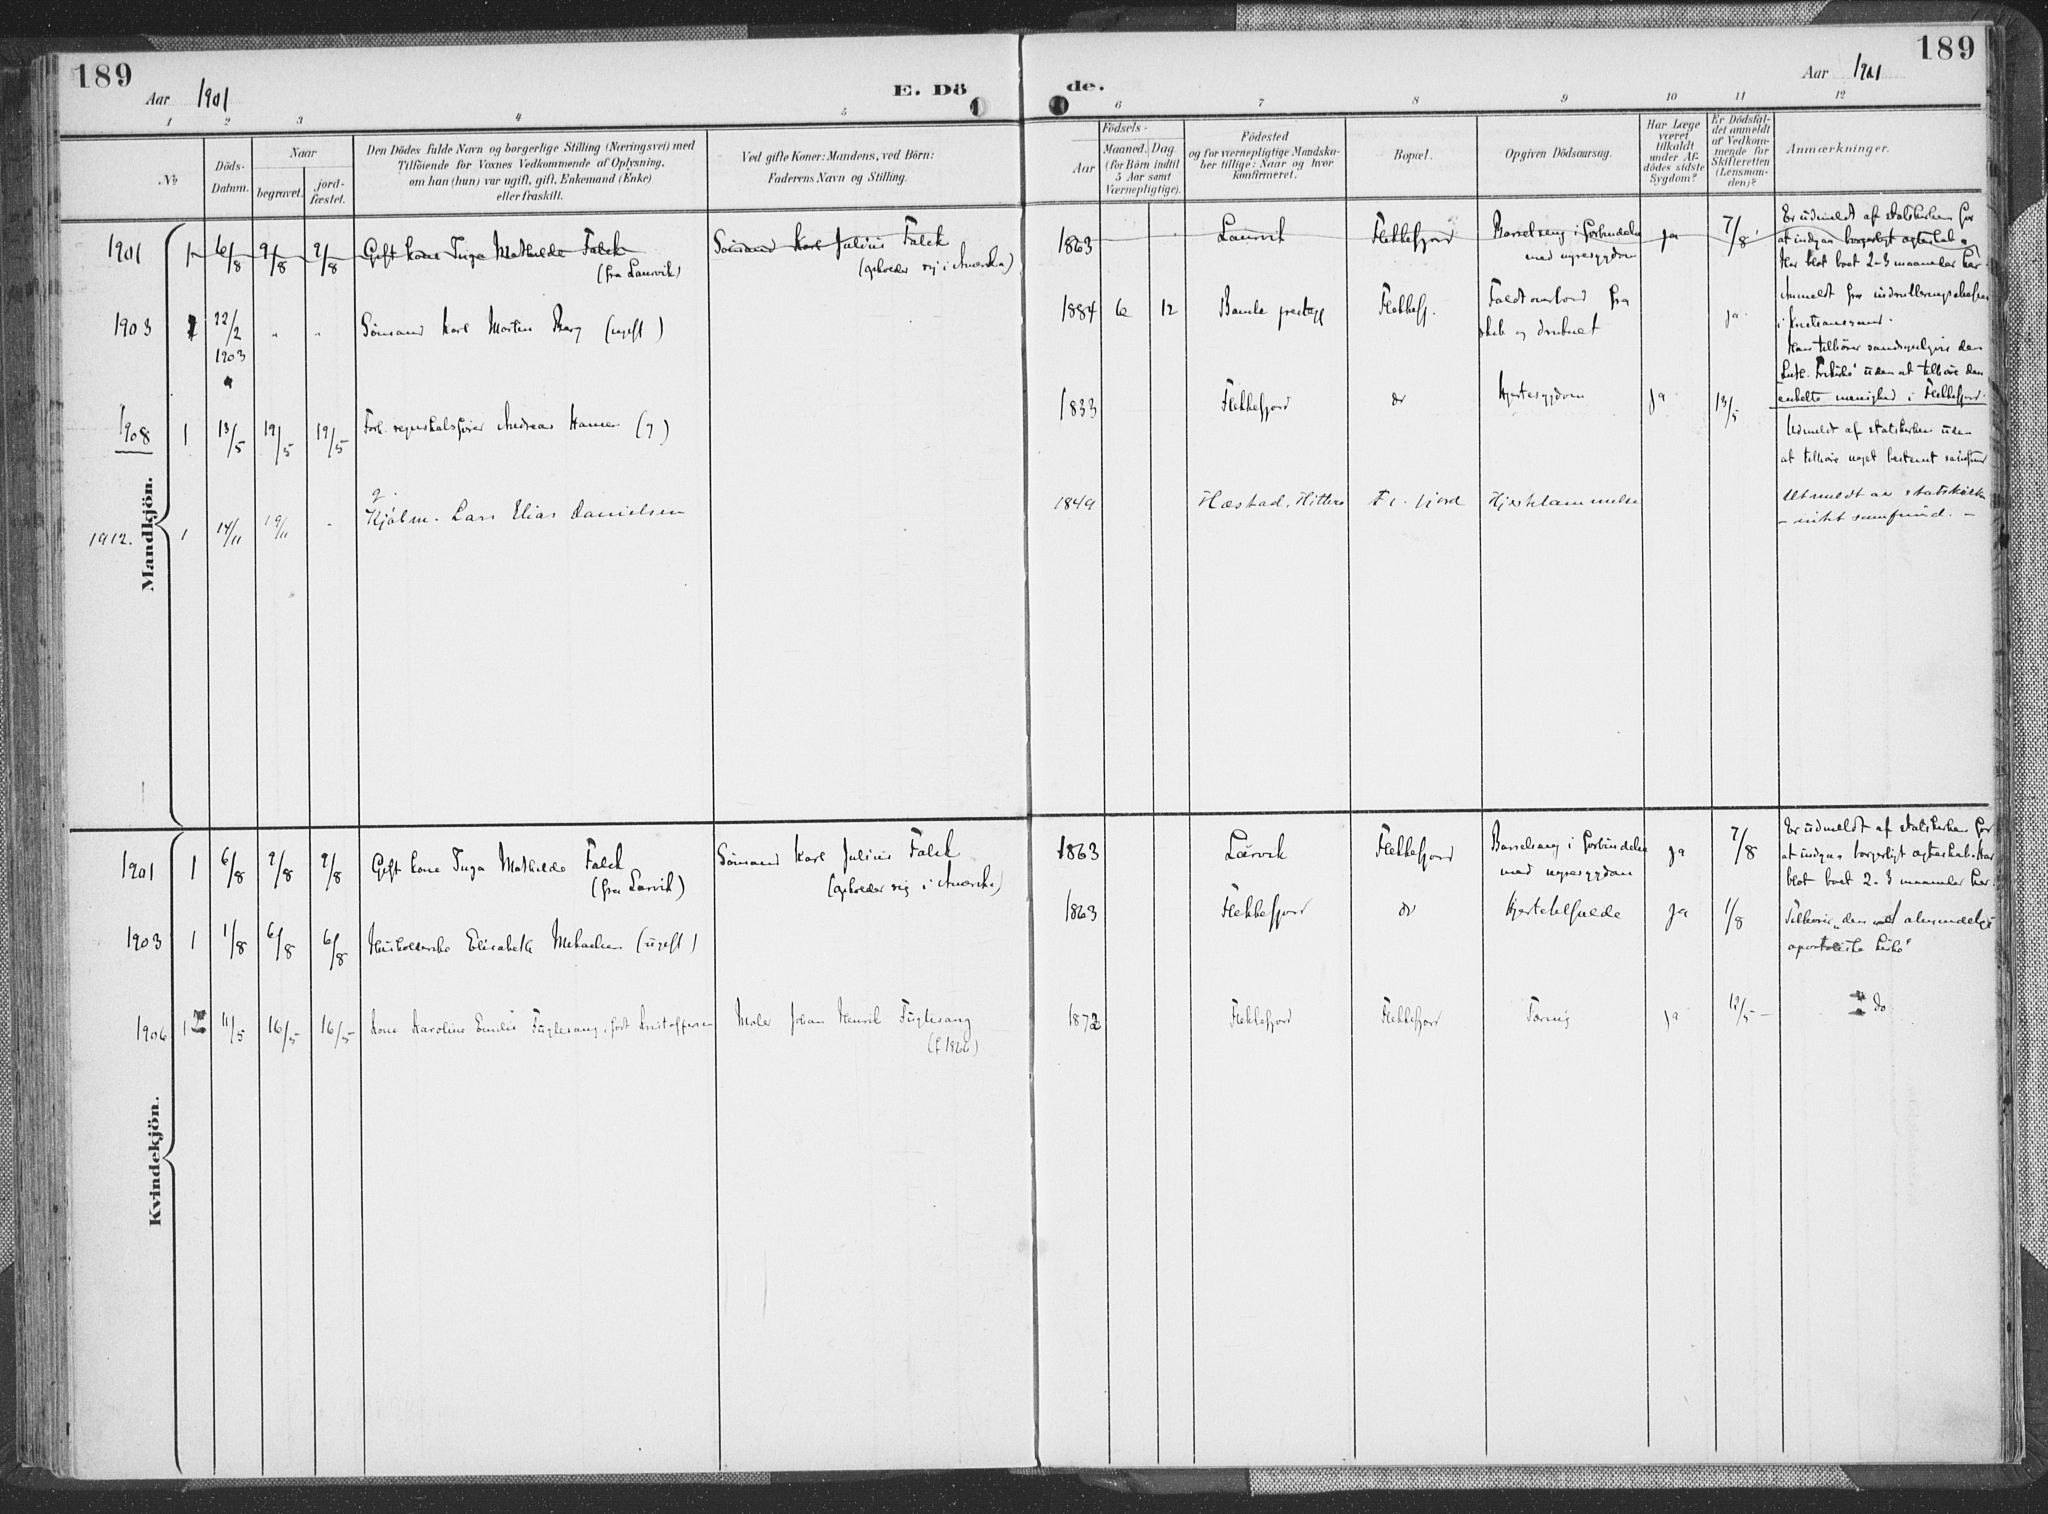 189
Aar 1901
E. Dö
de.
Aar 1901
189
1 2 3 4 5 6 7 8 9 10 11 12
No
Döds-
Datum.
Naar
begravet.
jord-
fæstet.
Den Dödes fulde Navn og borgerlige Stilling (Næringsvei) med
Tilföiende for Voxnes Vedkommende af Oplysning,
om han (hun) var ugift, gift, Enkemand (Enke)
eller fraskilt.
Ved gifte Koner: Mandens, ved Börn:
Faderens Navn og Stilling.
Födsels-
Aar
Maaned. Dag.
(for Börn indtil
5 Aar samt
Værnepligtige).
Födested
og for værnepligtige Mandskaber
tillige: Naar og hvor
Konfirmeret.
Bopæl.
Opgiven Dödsaarsag.
Har Læge
været
tilkaldt
under Af-
dödes sidste
Sygdom?
Er Dödsfal-
det anmeldt
af Vedkom-
mende for
Skifteretten
(Lensman-
den)?
Anmærkninger.
Mandkjön.
1901 1 6/8 9/8 9/8 Gift kone Inga Mathilde Falck
(fra Laurvik)
Sömand Karl Julius Falck
(opholder sig i Amerika)
1863 Laurvik Flekkefjord Barselseng i forbindelse
med nyresygdom
ja 7/8
Er udmeldt af statskirken for
at indgaa borgerligt ægteskab.
Har blot boet 2-3 maaneder her.
1903 1 22/2
1903
" " Sömand Karl Morten Berg (ugift)
1884 6 12 Bamle prestegj Flekkefj. Faldt overbord fra
skib og druknet
ja
Anmeldt fra indrulleringschefen
i Kristianssand.
Han tilhörer sandsynligvis den
Luth. Frikirke uden at tilhöre den
enkelte menighed i Flekkefjord.
1908 1 13/5 19/5 19/5 Forh. regnskabsförer Andreas Hansen (g)
1833 Flekkefjord do Hjertesygdom ja 13/5
Udmeldt af statskirken uden
at tilhöre noget bestemt samfund
1912. 1 14/11 19/11 - g.
Kjøbm. Lars Elias Danielsen
1849 Hæstad, Hitterø Fl. fjord Hjertelammelse
Utmeldt av statskirken
- intet samfund. -
Kvindekjön.
1901 1 6/8 9/8 9/8 Gift kone Inga Mathilde Falck
(fra Larvik)
Sömand Karl Julius Falck
(opholder sig i Amerika)
1863 Larvik Flekkefjord Barselseng i forbindelse
med nyresygdom
ja 7/8
Er udmeldt af statskirken for
at indgaa borgerligt ægteskab. Har
blot boet 2-3 maaneder her.
1903 1 1/8 6/8 6/8 Husholderske Elisabeth (ugift)
1863 Flekkefjord do Hjerteklfeilde ja 1/8
Tilhörer "den almindelige
apostoliske kirke"
1906 1 11/5 16/5 16/5 Kone Karoline Emilie Fuglesang, födt Kristoffersen
Maler Johan Henrik Fuglesang
(f 1866)
1872 Flekkefjord Flekkefjord Tæring ja 12/5 - do